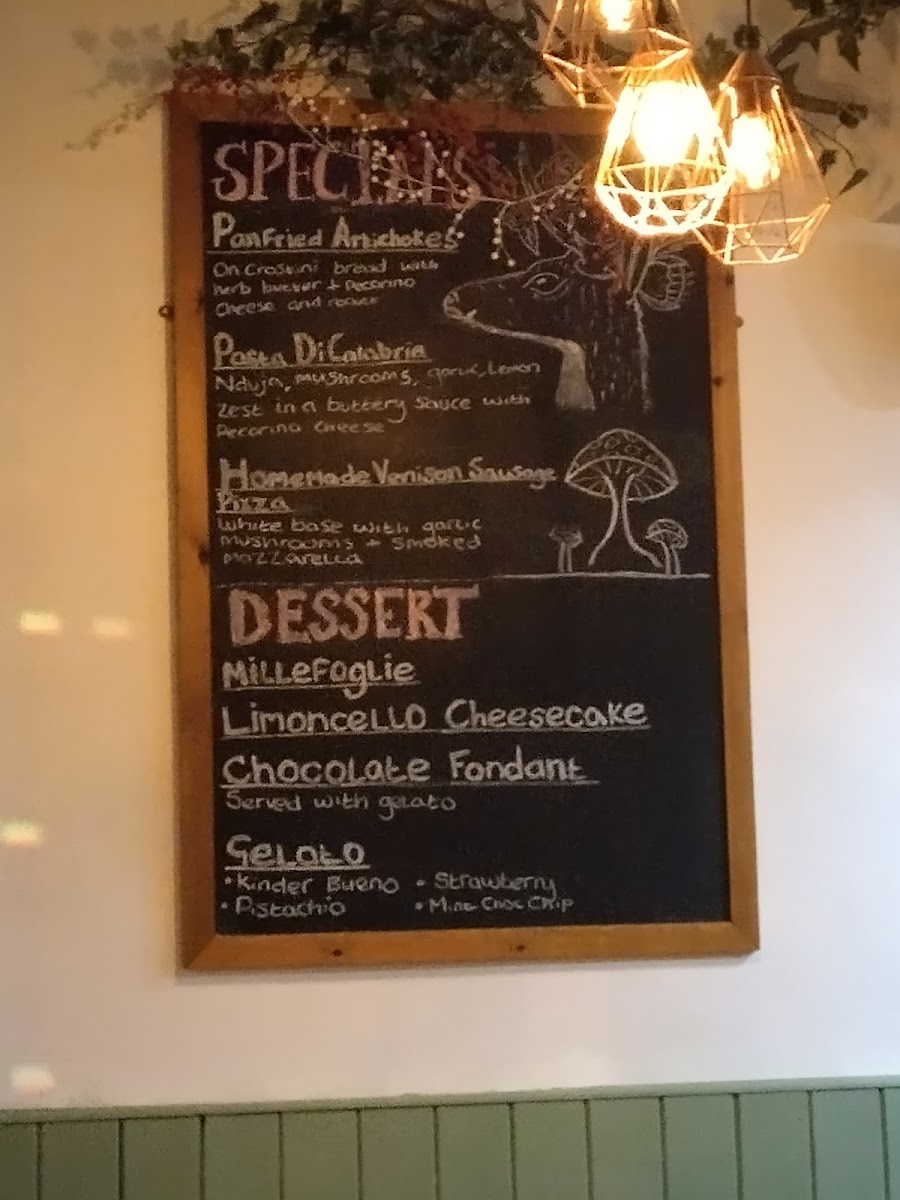 SPECIALS
Panfried Artichokes
On Crostini bread with
herb butter + Pecorino
Cheese and rocket
Pasta Di Calabria
Nduja, mushrooms, garlic, Lemon
zest in a buttery sauce with
Pecorino Cheese
Homemade Venison Sausage
Pizza
White base with garlic
mushrooms + smoked
mozzarella
DESSERT
Millefoglie
Limoncello Cheesecake
Chocolate Fondant
Served with gelato
Gelato
• Kinder Bueno • Strawberry
• Pistachio • Mint Choc Chip